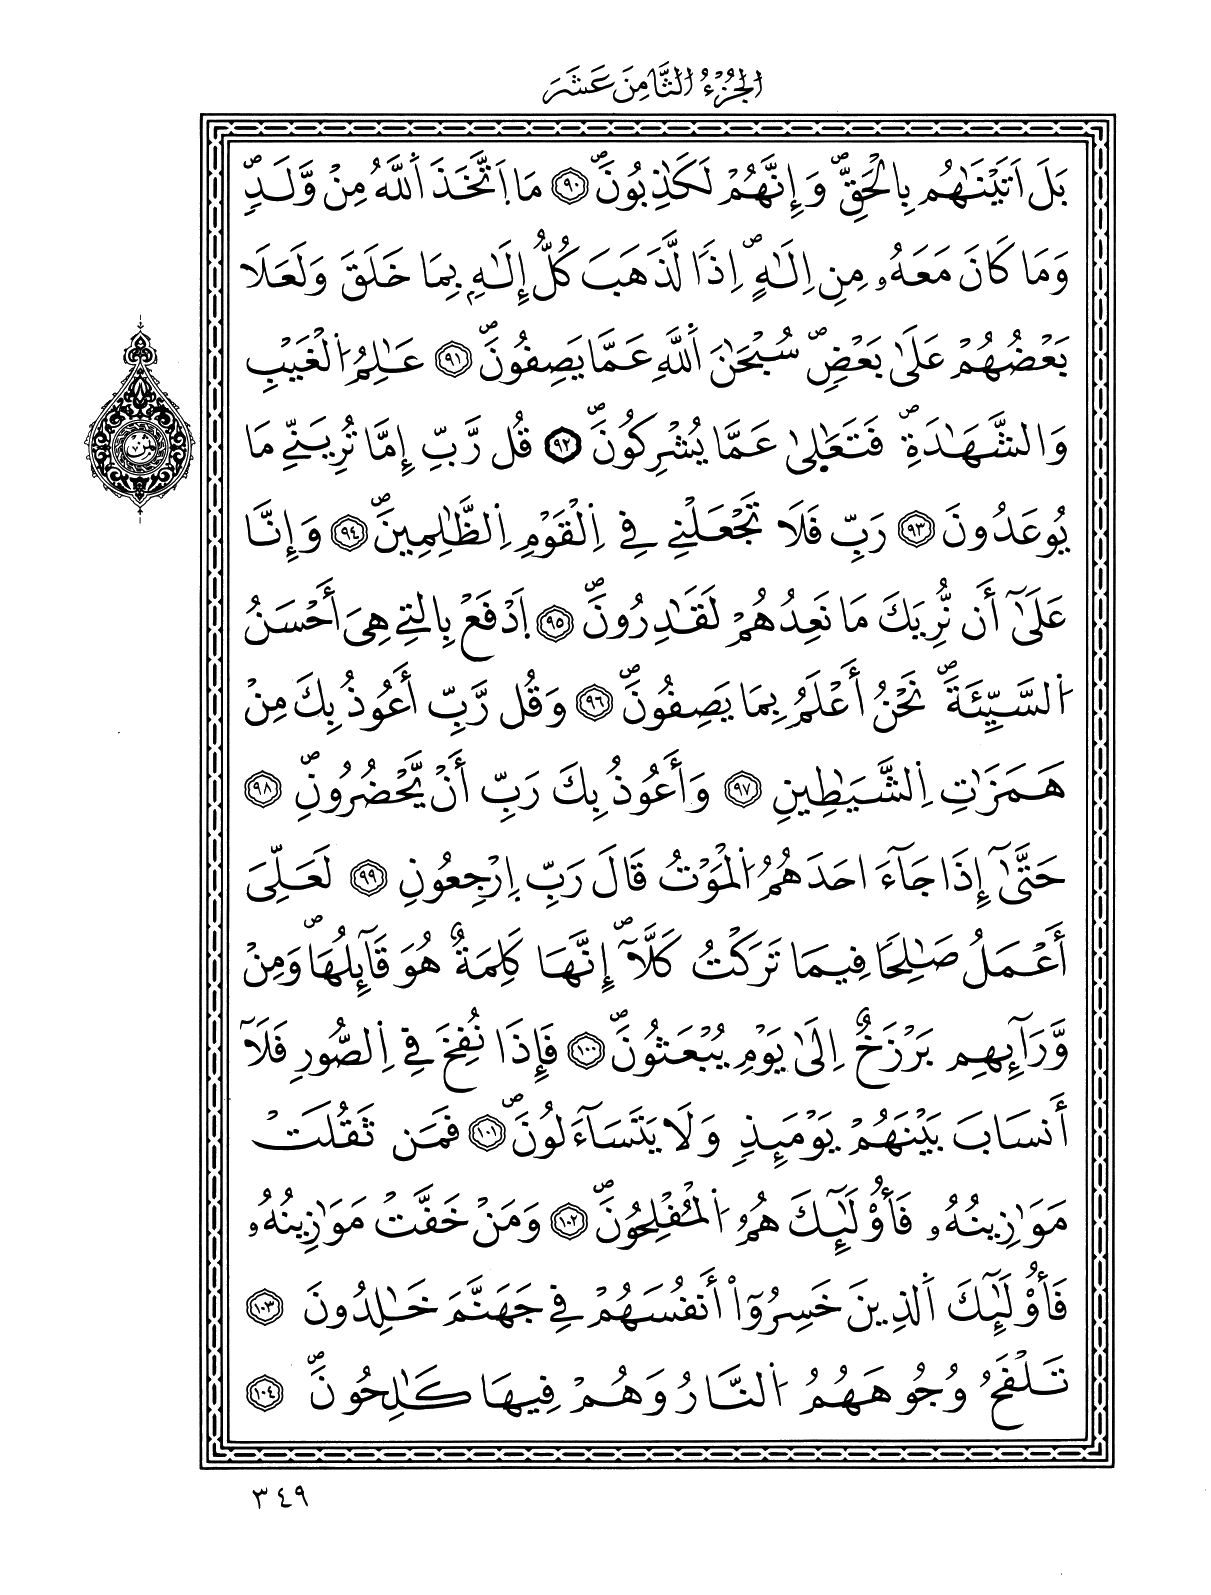 الجزء الثامن عشر
بَلَ اَتَيْنَٰهُم بِالْحَقِّۖ وَإِنَّهُمْ لَكَٰذِبُونَۖ ٩٠ مَا اَ۪تَّخَذَ اَ۬للَّهُ مِنْ وَّلَدٖۖ
وَمَا كَانَ مَعَهُۥ مِنِ اِلَٰهٍۖ اِذاٗ لَّذَهَبَ كُلُّ إِلَٰهِۢ بِمَا خَلَقَ وَلَعَلَا
بَعْضُهُمْ عَلَىٰ بَعْضٖۖ سُبْحَٰنَ اَ۬للَّهِ عَمَّا يَصِفُونَۖ ٩١ عَٰلِمُ اُ۬لْغَيْبِ
وَالشَّهَٰدَةِۖ فَتَعَٰلَىٰ عَمَّا يُشْرِكُونَۖ ٩٢ قُل رَّبِّ إِمَّا تُرِيَنِّے مَا
يُوعَدُونَ ٩٣ رَبِّ فَلَا تَجْعَلْنِے فِے اِ۬لْقَوْمِ اِ۬لظَّٰلِمِينَۖ ٩٤ وَإِنَّا
عَلَىٰٓ أَن نُّرِيَكَ مَا نَعِدُهُمْ لَقَٰدِرُونَۖ ٩٥ اَ۪دْفَعْ بِالتِے هِيَ أَحْسَنُ
اُ۬لسَّيِّئَةَۖ نَحْنُ أَعْلَمُ بِمَا يَصِفُونَۖ ٩٦ وَقُل رَّبِّ أَعُوذُ بِكَ مِنْ
هَمَزَٰتِ اِ۬لشَّيَٰطِينِ ٩٧ وَأَعُوذُ بِكَ رَبِّ أَنْ يَّحْضُرُونِۖ ٩٨
حَتَّىٰٓ إِذَا جَآءَ احَدَهُمُ اُ۬لْمَوْتُ قَالَ رَبِّ اِ۪رْجِعُونِ ٩٩ لَعَلِّيَ
أَعْمَلُ صَٰلِحاٗ فِيمَا تَرَكْتُ كَلَّآۖ إِنَّهَا كَلِمَةٌ هُوَ قَآئِلُهَاۖ وَمِنْ
وَّرَآئِهِم بَرْزَخٌ اِلَىٰ يَوْمِ يُبْعَثُونَۖ ١٠٠ فَإِذَا نُفِخَ فِے اِ۬لصُّورِ فَلَآ
أَنسَابَ بَيْنَهُمْ يَوْمَئِذٖ وَلَا يَتَسَآءَلُونَۖ ١٠١ فَمَن ثَقُلَتْ
مَوَٰزِينُهُۥ فَأُوْلَٰٓئِكَ هُمُ اُ۬لْمُفْلِحُونَۖ ١٠٢ وَمَنْ خَفَّتْ مَوَٰزِينُهُۥ
فَأُوْلَٰٓئِكَ اَ۬لذِينَ خَسِرُوٓاْ أَنفُسَهُمْ فِے جَهَنَّمَ خَٰلِدُونَ ١٠٣
تَلْفَحُ وُجُوهَهُمُ اُ۬لنَّارُ وَهُمْ فِيهَا كَٰلِحُونَۖ ١٠٤
٣٤٩